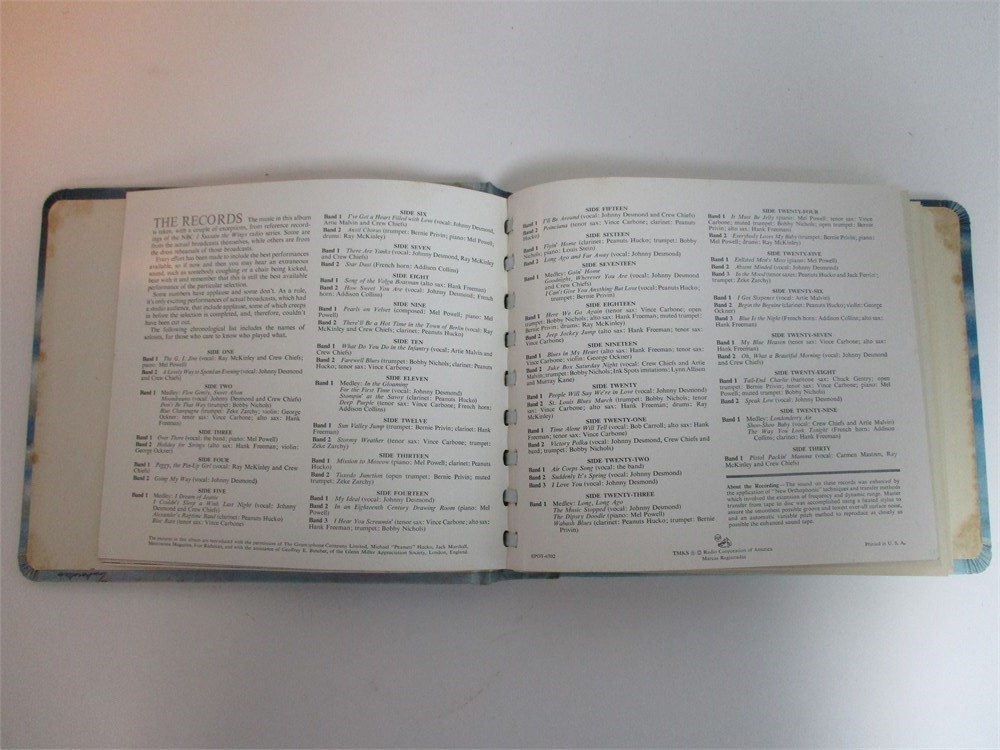 THE RECORDS The music in this album
is taken, with a couple of exceptions, from reference record-
ings of the NBC I Sustain the Wings radio series. Some are
from the actual broadcasts themselves, while others are from
the dress rehearsals of those broadcasts.
Every effort has been made to include the best performances
available, so if now and then you may hear an extraneous
sound, such as somebody coughing or a chair being kicked,
bear with it and remember that this is still the best available
performance of the particular selection.
Some numbers have applause and some don't. As a rule,
it's only exciting performances of actual broadcasts, which had
a studio audience, that include applause, some of which creeps
in before the selection is completed, and, therefore, couldn't
have been cut out.
The following chronological list includes the names of
soloists, for those who care to know who played what.
SIDE ONE
Band 1 The G. I. Jive (vocal: Ray McKinley and Crew Chiefs;
piano: Mel Powell)
Band 2 A Lovely Way to Spend an Evening (vocal: Johnny Desmond
and Crew Chiefs)
SIDE TWO
Band 1 Medley: Flow Gently, Sweet Afton
Moondreams (vocal: Johnny Desmond and Crew Chiefs)
Don't Be That Way (trumpet: Bobby Nichols)
Blue Champagne (trumpet: Zeke Zarchy; violin: George
Ockner; tenor sax: Vince Carbone; alto sax: Hank
Freeman)
SIDE THREE
Band 1 Over There (vocal: the band; piano: Mel Powell)
Band 2 Holiday for Strings (alto sax: Hank Freeman; violin:
George Ockner)
SIDE FOUR
Band 1 Peggy, the Pin-Up Girl (vocal: Ray McKinley and Crew
Chiefs)
Band 2 Going My Way (vocal: Johnny Desmond)
SIDE FIVE
Band 1 Medley: I Dream of Jeanie
I Couldn't Sleep a Wink Last Night (vocal: Johnny
Desmond and Crew Chiefs)
Alexander's Ragtime Band (clarinet: Peanuts Hucko)
Blue Rain (tenor sax: Vince Carbone)
SIDE SIX
Band 1 I've Got a Heart Filled with Love (vocal: Johnny Desmond,
Artie Malvin and Crew Chiefs)
Band 2 Anvil Chorus (trumpet: Bernie Privin; piano: Mel Powell;
drums: Ray McKinley)
SIDE SEVEN
Band 1 There Are Yanks (vocal: Johnny Desmond, Ray McKinley
and Crew Chiefs)
Band 2 Star Dust (French horn: Addison Collins)
SIDE EIGHT
Band 1 Song of the Volga Boatman (alto sax: Hank Freeman)
Band 2 How Sweet You Are (vocal: Johnny Desmond; French
horn: Addison Collins)
SIDE NINE
Band 1 Pearls on Velvet (composed: Mel Powell; piano: Mel
Powell)
Band 2 There'll Be a Hot Time in the Town of Berlin (vocal: Ray
McKinley and Crew Chiefs; clarinet: Peanuts Hucko)
SIDE TEN
Band 1 What Do You Do in the Infantry (vocal: Artie Malvin and
Crew Chiefs)
Band 2 Farewell Blues (trumpet: Bobby Nichols; clarinet: Peanuts
Hucko; tenor sax: Vince Carbone)
SIDE ELEVEN
Band 1 Medley: In the Gloaming
For the First Time (vocal: Johnny Desmond)
Stompin' at the Savoy (clarinet: Peanuts Hucko)
Deep Purple (tenor sax: Vince Carbone; French horn:
Addison Collins)
SIDE TWELVE
Band 1 Sun Valley Jump (trumpet: Bernie Privin; clarinet: Hank
Freeman)
Band 2 Stormy Weather (tenor sax: Vince Carbone; trumpet:
Zeke Zarchy)
SIDE THIRTEEN
Band 1 Mission to Moscow (piano: Mel Powell; clarinet: Peanuts
Hucko)
Band 2 Tuxedo Junction (open trumpet: Bernie Privin; muted
trumpet: Zeke Zarchy)
SIDE FOURTEEN
Band 1 My Ideal (vocal: Johnny Desmond)
Band 2 In an Eighteenth Century Drawing Room (piano: Mel
Powell)
Band 3 I Hear You Screamin' (tenor sax: Vince Carbone; alto sax:
Hank Freeman; trumpet: Bobby Nichols)
SIDE FIFTEEN
Band 1 I'll Be Around (vocal: Johnny Desmond and Crew Chiefs)
Band 2 Poinciana (tenor sax: Vince Carbone; clarinet: Peanuts
Hucko)
SIDE SIXTEEN
Band 1 Flyin' Home (clarinet: Peanuts Hucko; trumpet: Bobby
Nichols; piano: Louis Stein)
Band 2 Long Ago and Far Away (vocal: Johnny Desmond)
SIDE SEVENTEEN
Band 1 Medley: Goin' Home
Goodnight, Wherever You Are (vocal: Johnny Desmond
and Crew Chiefs)
I Can't Give You Anything But Love (vocal: Peanuts Hucko;
trumpet: Bernie Privin)
SIDE EIGHTEEN
Band 1 Here We Go Again (tenor sax: Vince Carbone; open
trumpet: Bobby Nichols; alto sax: Hank Freeman; muted trumpet:
Bernie Privin; drums: Ray McKinley)
Band 2 Jeep Jockey Jump (alto sax: Hank Freeman; tenor sax:
Vince Carbone)
SIDE NINETEEN
Band 1 Blues in My Heart (alto sax: Hank Freeman; tenor sax:
Vince Carbone; violin: George Ockner)
Band 2 Juke Box Saturday Night (vocal: Crew Chiefs and Artie
Malvin; trumpet: Bobby Nichols; Ink Spots imitations: Lynn Allison
and Murray Kane)
SIDE TWENTY
Band 1 People Will Say We're in Love (vocal: Johnny Desmond)
Band 2 St. Louis Blues March (trumpet: Bobby Nichols; tenor
sax: Vince Carbone; alto sax: Hank Freeman; drums: Ray
McKinley)
SIDE TWENTY-ONE
Band 1 Time Alone Will Tell (vocal: Bob Carroll; alto sax: Hank
Freeman; tenor sax: Vince Carbone)
Band 2 Victory Polka (vocal: Johnny Desmond, Crew Chiefs and
band; trumpet: Bobby Nichols)
SIDE TWENTY-TWO
Band 1 Air Corps Song (vocal: the band)
Band 2 Suddenly It's Spring (vocal: Johnny Desmond)
Band 3 I Love You (vocal: Johnny Desmond)
SIDE TWENTY-THREE
Band 1 Medley: Long, Long Ago
The Music Stopped (vocal: Johnny Desmond)
The Dipsy Doodle (piano: Mel Powell)
Wabash Blues (clarinet: Peanuts Hucko; trumpet: Bernie
Privin)
SIDE TWENTY-FOUR
Band 1 It Must Be Jelly (piano: Mel Powell; tenor sax: Vince
Carbone; muted trumpet: Bobby Nichols; open trumpet: Bernie
Privin; alto sax: Hank Freeman)
Band 2 Everybody Loves My Baby (trumpet: Bernie Privin; piano:
Mel Powell; drums: Ray McKinley)
SIDE TWENTY-FIVE
Band 1 Enlisted Men's Mess (piano: Mel Powell)
Band 2 Absent Minded (vocal: Johnny Desmond)
Band 3 In the Mood (tenor saxes: Peanuts Hucko and Jack Ferrier;
trumpet: Zeke Zarchy)
SIDE TWENTY-SIX
Band 1 I Got Sixpence (vocal: Artie Malvin)
Band 2 Begin the Beguine (clarinet: Peanuts Hucko; violin: George
Ockner)
Band 3 Blue Is the Night (French horn: Addison Collins; alto sax:
Hank Freeman)
SIDE TWENTY-SEVEN
Band 1 My Blue Heaven (tenor sax: Vince Carbone; alto sax:
Hank Freeman)
Band 2 Oh, What a Beautiful Morning (vocal: Johnny Desmond
and Crew Chiefs)
SIDE TWENTY-EIGHT
Band 1 Tail-End Charlie (baritone sax: Chuck Gentry; open
trumpet: Bernie Privin; tenor sax: Vince Carbone; piano: Mel
Powell; muted trumpet: Bobby Nichols)
Band 2 Speak Low (vocal: Johnny Desmond)
SIDE TWENTY-NINE
Band 1 Medley: Londonderry Air
Shoo-Shoo Baby (vocal: Crew Chiefs and Artie Malvin)
The Way You Look Tonight (French horn: Addison
Collins; clarinet: Hank Freeman)
SIDE THIRTY
Band 1 Pistol Packin' Mamma (vocal: Carmen Mastren, Ray
McKinley and Crew Chiefs)
About the Recording—The sound on these records was enhanced by
the application of "New Orthophonic" techniques and transfer methods
which involved the extension of frequency and dynamic range. Master
transfer from tape to disc was accomplished using a heated stylus to
assure the smoothest possible groove and lowest over-all surface noise,
and an automatic variable pitch method to reproduce as closely as
possible the enhanced sound tape.
The pictures in this album are reproduced with the permission of The Gramophone Company Limited, Michael "Peanuts" Hucko, Jack Marshall,
Metronome Magazine, and with the assistance of Geoffrey E. Butcher, of the Glenn Miller Appreciation Society, London, England.
EPOT-6702
TMKS ® © Radio Corporation of America
Marcas Registradas
Printed in U. S. A.